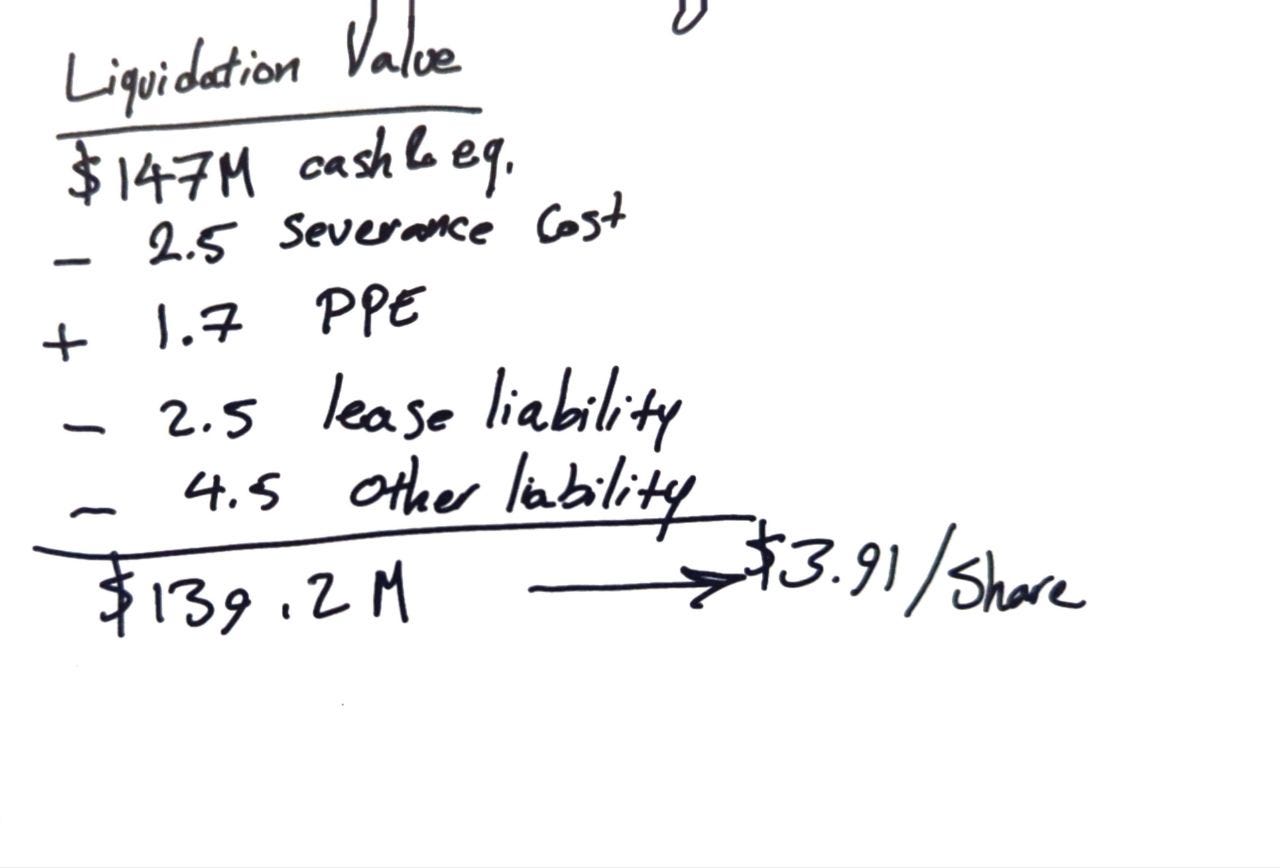 Liquidation Value
$147M cash & eq.
- 2.5 Severance Cost
+ 1.7 PPE
- 2.5 lease liability
- 4.5 Other liability
$139.2M → $3.91/Share